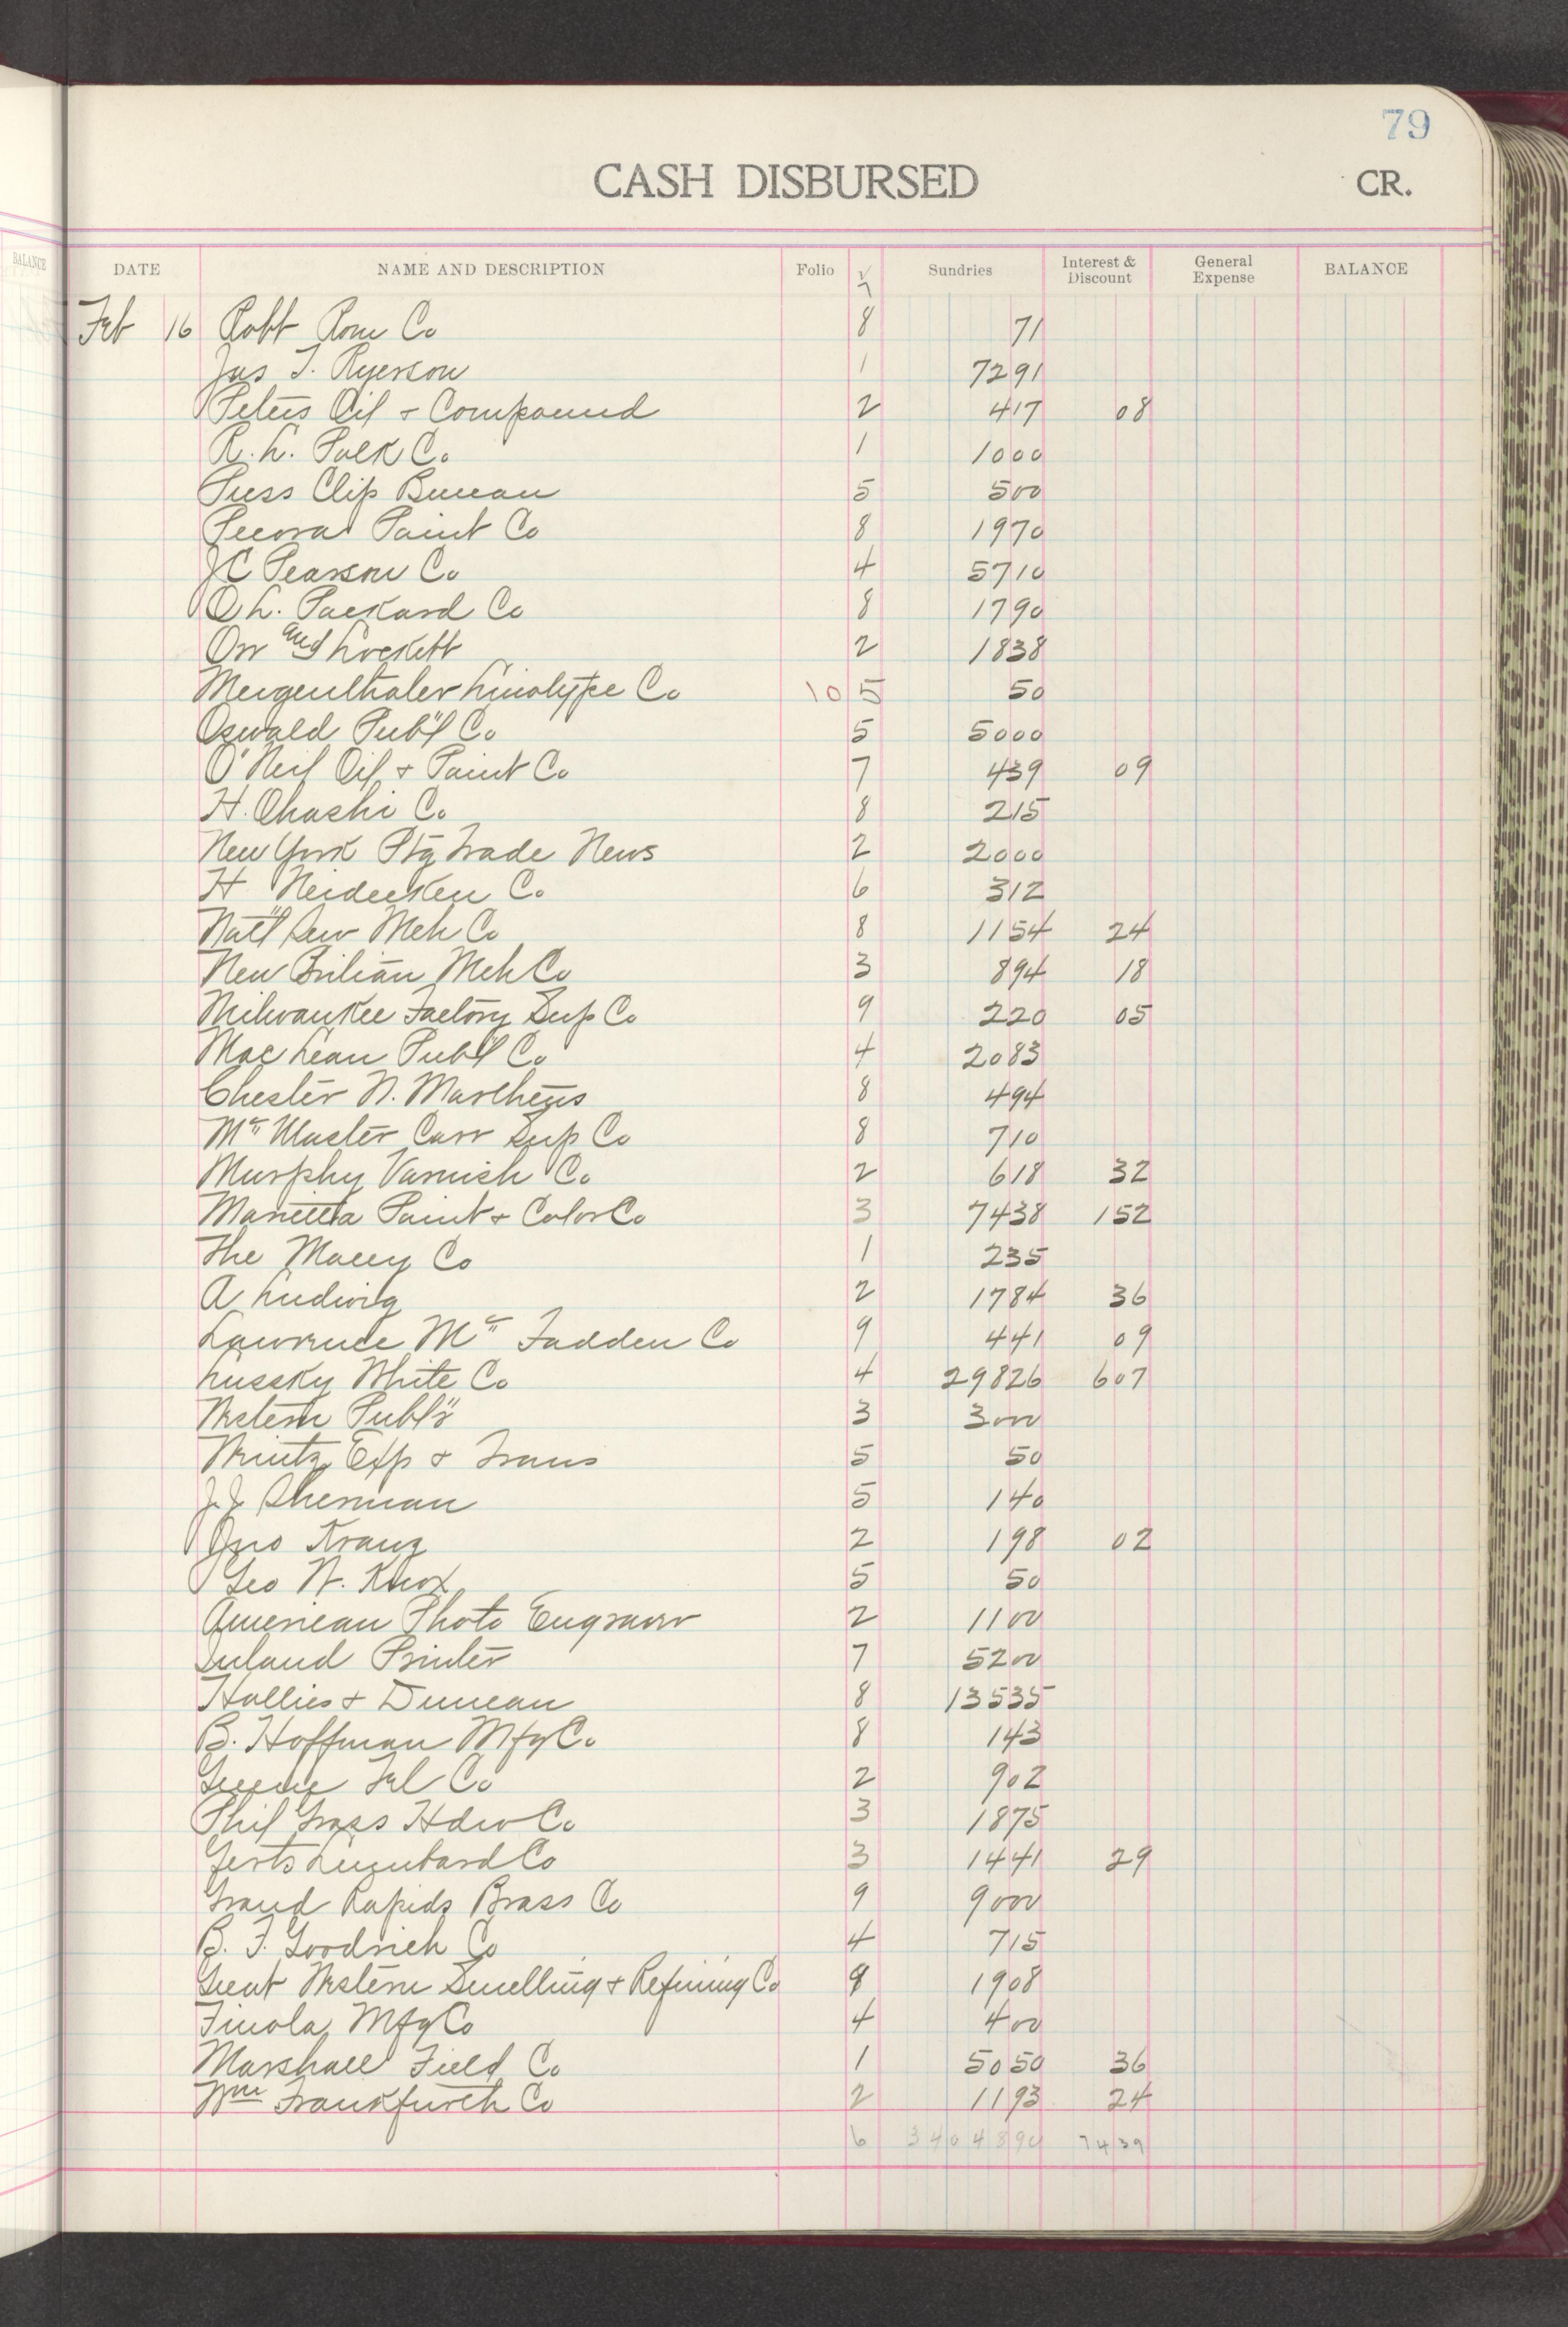 79
CASH DISBURSED CR.
BALANCE DATE NAME AND DESCRIPTION Folio √ Sundries Interest & Discount General Expense BALANCE
7
Feb 16 Robt Rom Co 8 71
Jas T. Ryerson 1 7291
Peters Oil + Compound 2 417 08
R. L. Polk Co. 1 1000
Press Clip Bureau 5 500
Pecora Paint Co 8 1970
J C Pearson Co 4 5710
O L. Packard Co 8 1790
Orr and Lockett 2 1838
Mergenthaler Linolype Co 10 5 50
Oswald Pub'l Co 5 5000
O'Neil Oil + Paint Co 7 439 09
H. Ohashi Co. 8 215
New York Ptg Trade News 2 2000
H Neidecken Co. 6 312
Nat'l Sew Mch Co 8 1154 24
New Britian Mch Co 3 894 18
Milwaukee Factory Sup Co 9 220 05
Mac Lean Publ Co 4 2083
Chester N. Marthens 8 494
Mc Master Carr Sup Co 8 710
Murphy Varnish Co. 2 618 32
Marietta Paint + Color Co 3 7438 152
The Macey Co 1 235
A Ludwig 2 1784 36
Lawrence Mc Fadden Co 9 441 09
Lussky White Co 4 29826 607
Western Publ's 3 3000
Wintz Exp + Trans 5 50
J. J. Sherman 5 140
Jno Kranz 2 198 02
Geo W. Knox 5 50
American Photo Engraver 2 1100
Inland Printer 7 5200
Hollies + Duncan 8 13535
B. Hoffman Mfg Co. 8 143
Greene Tel Co 2 902
Phil Gross Hdw Co. 3 1875
Gerts Lumbard Co 3 1441 29
Grand Rapids Brass Co 9 9000
B. F. Goodrich Co 4 715
Great Western Smelling + Refining Co 9 1908
Finola Mfg Co 4 400
Marshall Field Co 1 5050 36
Wm Frankfurth Co 2 1193 24
6 3404890 7439